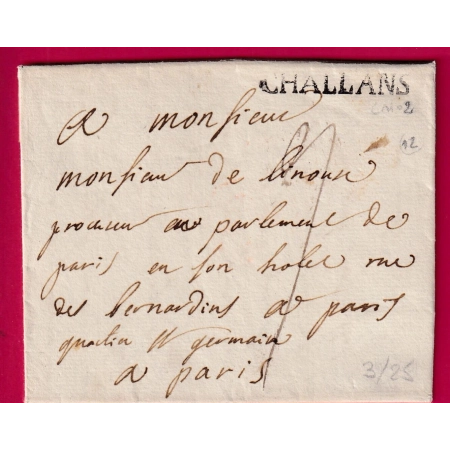 CHALLANS
A monsieur
monsieur de linouse
procureur au parlement de
paris en son hotel rue
des bernardins a paris
quartier st germain
a paris
3/25